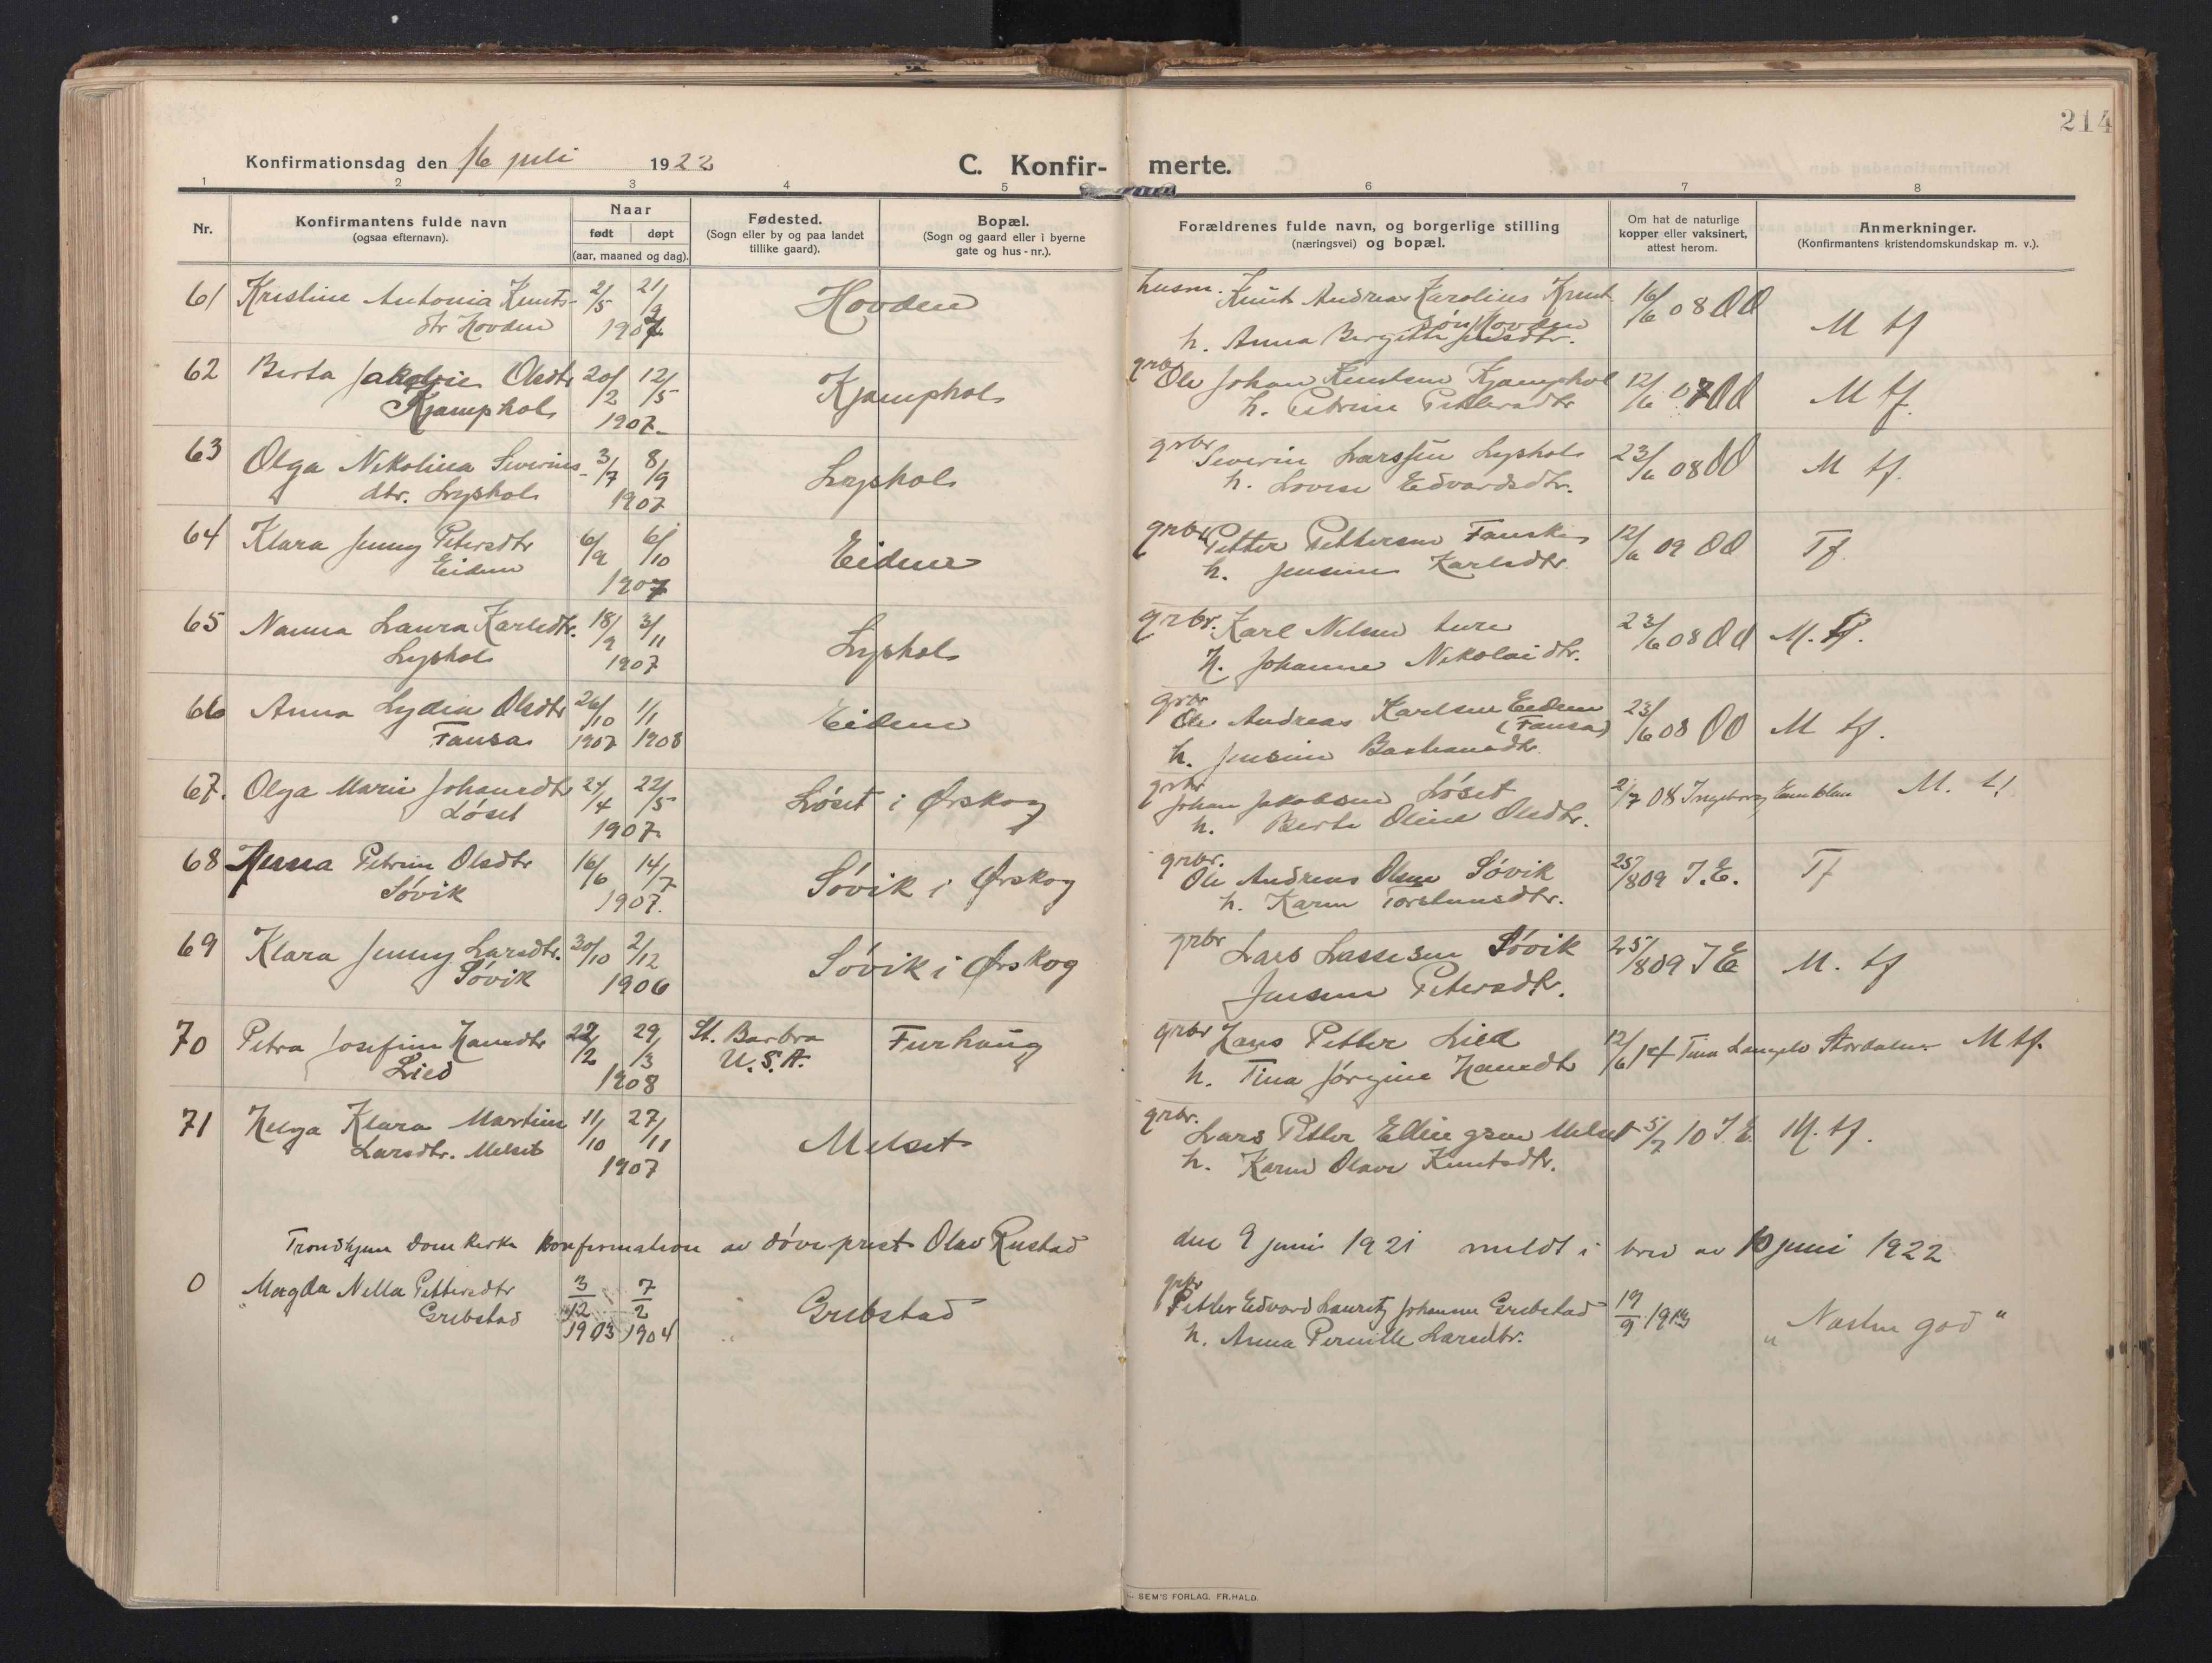 214
Konfirmationsdag den 16 juli 1922
C. Konfir- merte.
1 2 3 4 5 6 7 8
Nr.
Konfirmantens fulde navn
(ogsaa efternavn).
Naar
født døpt
(aar, maaned og dag).
Fødested.
(Sogn eller by og paa landet
tillike gaard).
Bopæl.
(Sogn og gaard eller i byerne
gate og hus - nr.).
Forældrenes fulde navn, og borgerlige stilling
(næringsvei) og bopæl.
Om hat de naturlige
kopper eller vaksinert,
attest herom.
Anmerkninger.
(Konfirmantens kristendomskundskap m. v.).
61 Kristine Antonia Knuts- 2/5 21/9 Hovden husm. Knut Andreas Karolius Knut 16/6 08 OO M tf
dtr Hovden 1907 søn Hovden
h. Anna Bergitte Jensdtr.
62 Berta Olsdtr 20/2 12/5 Kjamphol grbr Ole Johan Knutsen Kjamphol 12/6 07 OO M tf.
Kjamphol 1907 h. Petrine Pettersdtr
63 Olga Nikolina Severins- 3/7 8/9 Lyshol grbr Severin Larssen Lyshol 23/6 08 OO M tf.
dtr. Lyshol 1907 h. Lovise Edvardsdtr.
64 Klara Jenny Petersdtr 6/9 6/10 Eidem grbr Petter Pettersen Fauske 12/6 09 OO Tf
Eidem 1907 h. Jensine Karlsdtr
65 Nanna Laura Karlsdtr. 18/9 3/11 Lyshol grbr. Karl Nilsen ture 23/6 08 OO M. tf.
Lyshol 1907 h. Johanne Nikolaidtr.
66 Anna Lydia Olsdtr 26/10 1/1 Eidem grbr Ole Andreas Karlsen Eidem 23/6 08 OO M tf.
Fausa 1907 1908 (Fausa)
h. Jensine Bastiansdtr.
67. Olga Marie Johansdtr 24/4 22/5 Løset i Ørskog grbr Johan Jakobsen Løset 2/7 08 Ingeborg Emblem M. tf
Løset 1907 h. Berte Oline Olsdtr.
68 Petrine Olsdtr 16/6 14/7 Søvik i Ørskog grbr. Ole Andreas Olsen Søvik 25/8 09 I. E. Tf
Søvik 1907. h. Karen Torstensdtr.
69 Klara Jenny Larsdtr. 30/10 2/12 Søvik i Ørskog grbr Lars Lassesen Søvik 25/8 09 I E M. tf
Søvik 1906 Jensine Petersdtr.
70 Petra Josefine Hansdtr 22/2 29/3 St. Barbra Furhaug grbr Hans Petter Lied 12/6 14 Tina Stordalen M tf.
Lied 1908 U.S.A. h. Tina Jørgine Hansdtr
71 Helga Klara Martine 11/10 27/11 Melset grbr. Lars Petter Ellingsen Melset 5/7 10 I. E. M. tf.
Larsdtr. Melset 1907 h. Karen Olave Knutsdtr.
Trondhjem Domkirke konfirmation av døveprest Olav Rustad den 9 juni 1921 meldt i brev av 10 juni 1922
0 Magda Nella Pettersdtr 3/12 7/2 Grebstad grbr Petter Edvard Lauritz Johansen Grebstad 19/9 19 "Næsten god"
Grebstad 1903 1904 h. Anna Pernille Larsdtr.
SEM'S FORLAG, FR.HALD